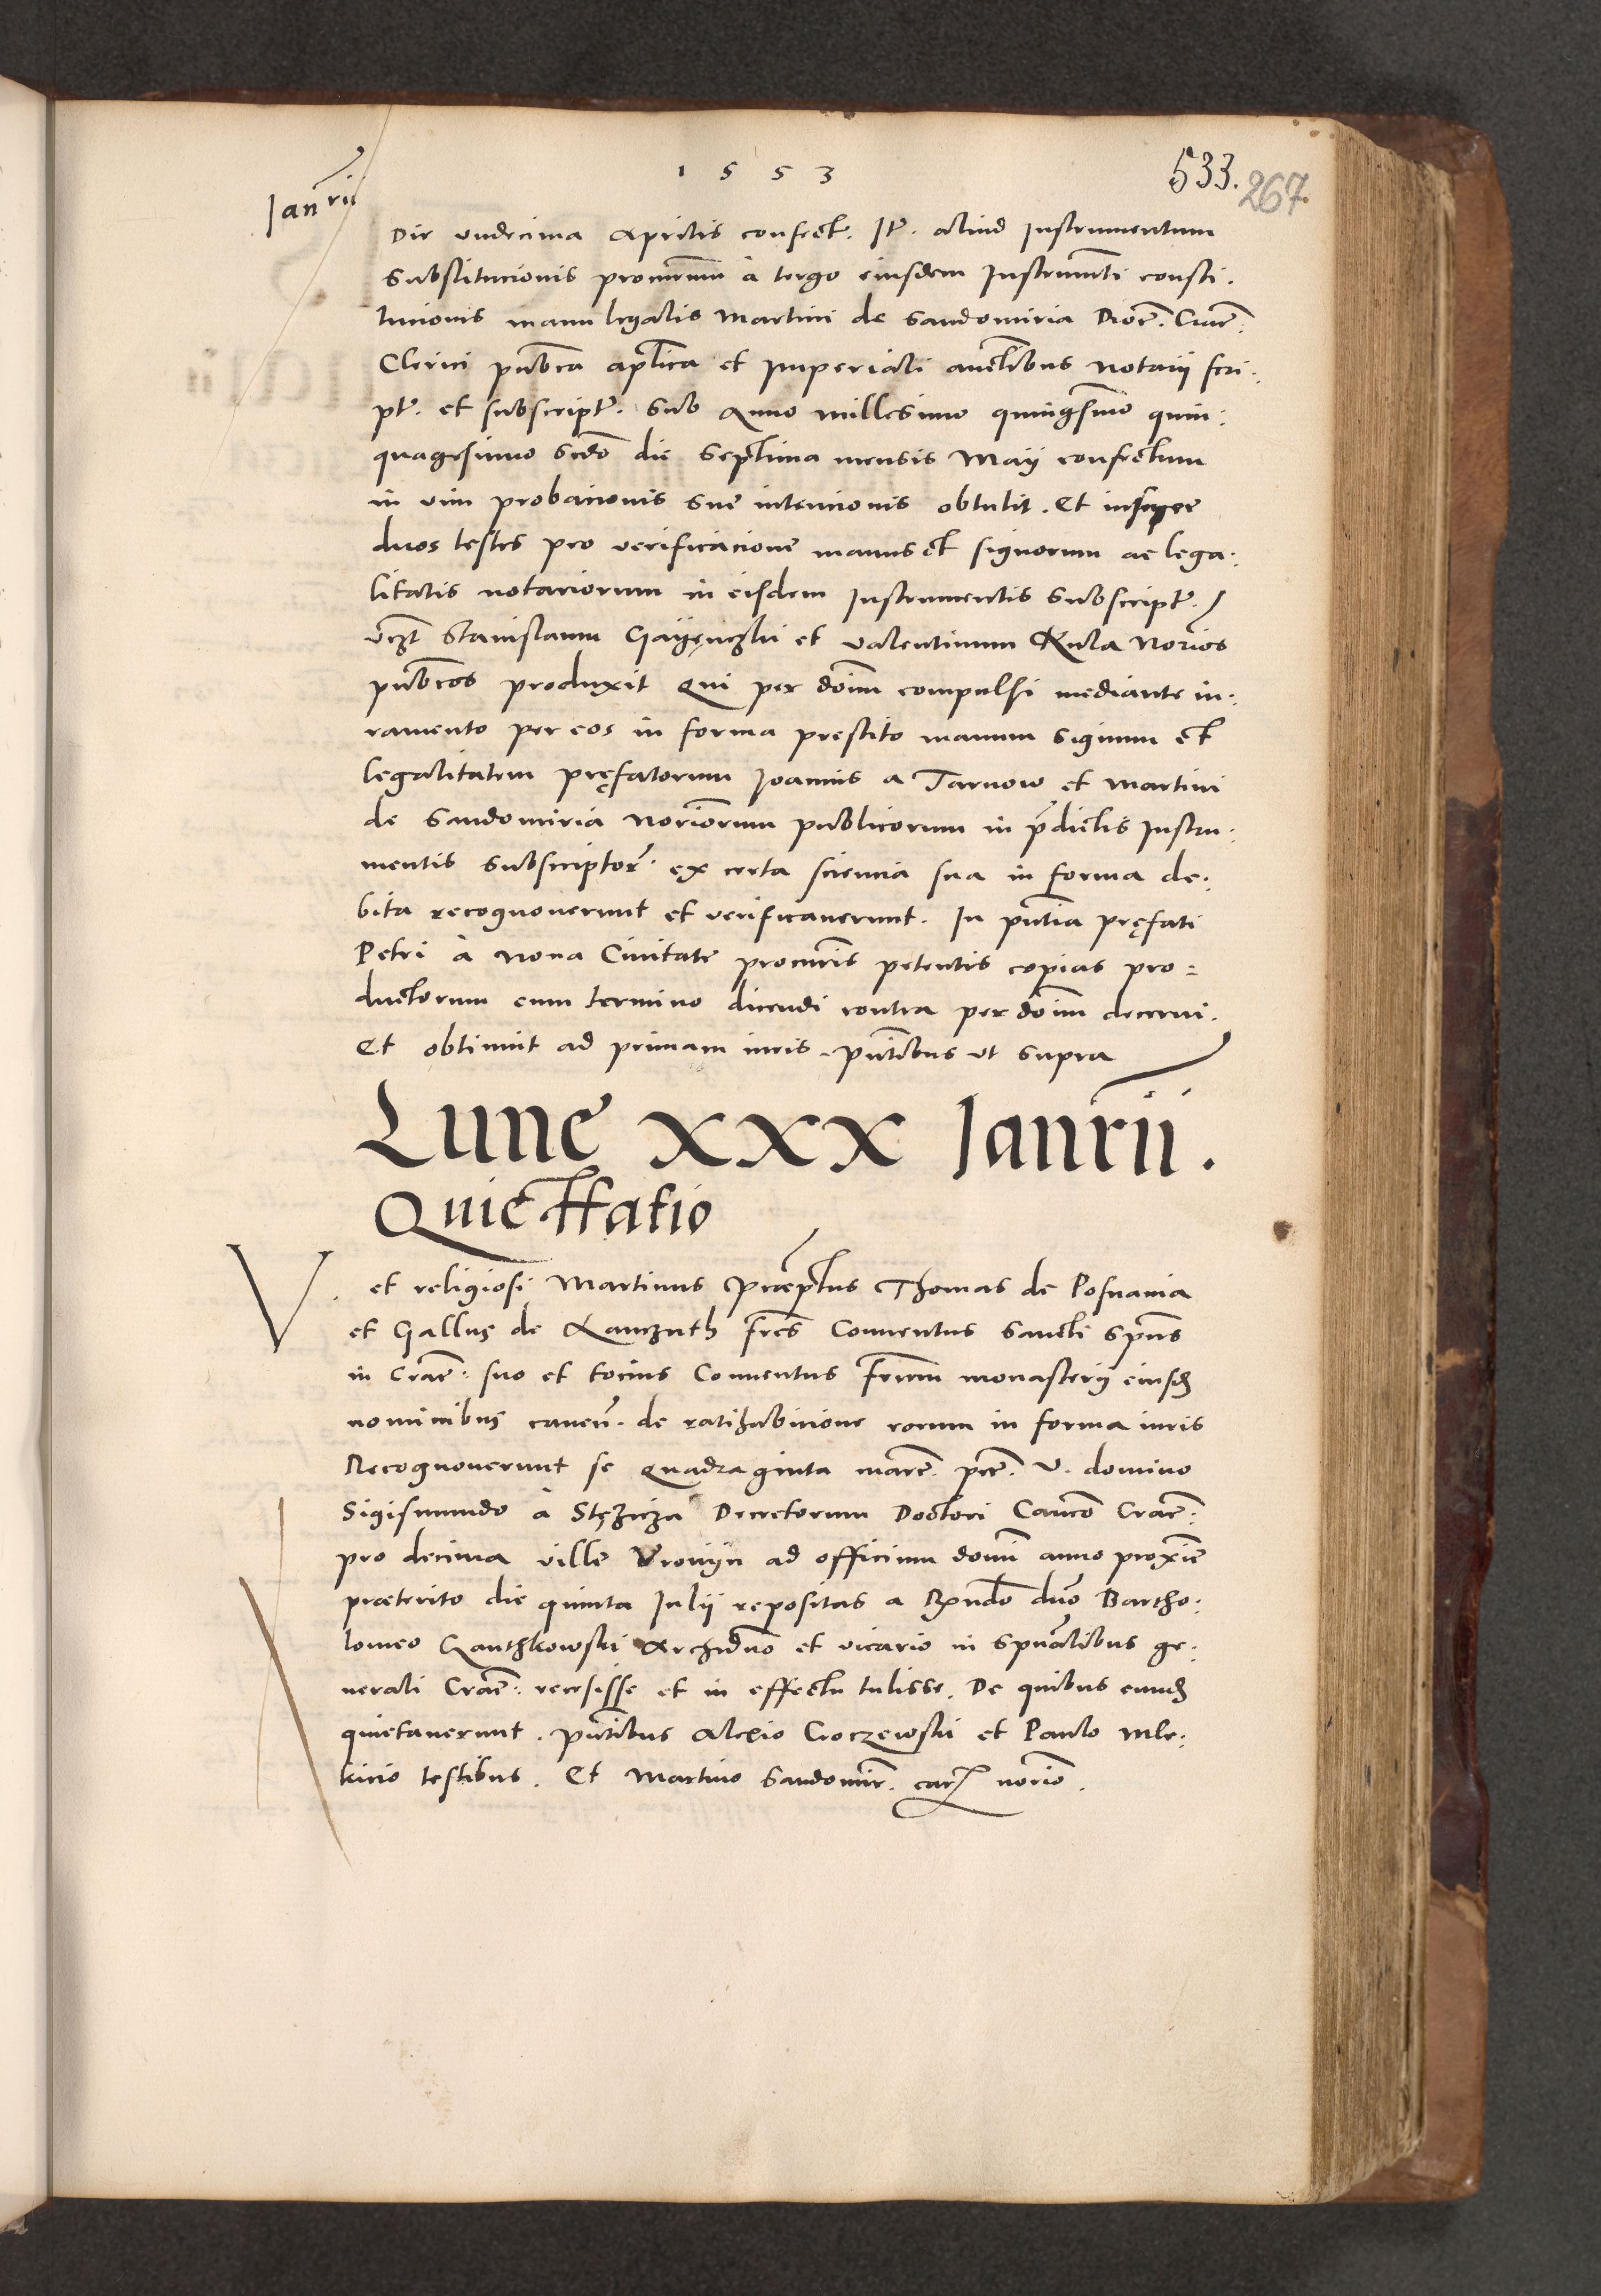 1 5 5 3
533.
267.
Ianrii
Die undecima Aprilis confect. It. aliud Instrumentum
Substitucionis procurnm à tergo eiusdem Instrumti consti.
tucionis manu legalis Martini de Sandomiria Dioc. Crac.
Clerici publca aplica et Imperiali auctibus Notarii scri.
pt. et subscript. Sub Anno millesimo quingsmo quin:
quagesimo scdo die Septima mensis Maii confectum
in vim probacionis sue intencionis obtulit. Et insuper
duos testes pro verificacione manus et signorum ac lega:
litatis notariorum in eisdem Instrumentis Subscript.
vczt Stanislaum Gayęnczki et Valentinum Kula Norios
publcos produxit Qui per dnum compulsi mediante iu:
ramento per eos in forma prestito manum Signum et
legalitatem pręfatorum Joannis a Tarnow et Martini
de Sandomiria Noriorum publicorum in pdictis Instru:
mentis Subscriptor. ex certa sciencia sua in forma de:
bita recognoverunt et verificaverunt. In pntia pręfati
Petri à Nova Civitate procuris petentis copias pro=
ductorum cum termino dicendi contra per dnum decerni.
Et obtinuit ad primam iuris. pntibus ut supra
Lune xxx Ianrii.
Quiettatio
V. et religiosi Martinus Præptus Thomas de Posnania
et Gallus de Lanczuth fres Conventus Sancti Spus
in Crac: suo et tocius Conventus frum monasterii eiusd
nominibus caven. de ratihabicione eorum in forma iuris
Recognoverunt se Quadraginta marc. pec. V. domino
Sigismundo à Stęzicza Decretorum Doctori Canco Crac:
pro decima ville Vroniyn ad officium domi anno proxime
præterito die quinta Iulii repositas a Rxndo dno Bartho:
lomeo Ganthkowski Archidno et vicario in Spualibus ge:
nerali Crac: recepisse et in effectu tulisse. De quibus eund
quietaverunt. pntibus Alexio Croczewski et Paulo Mle:
kicio testibus. Et Martino Sandomir. car norio.